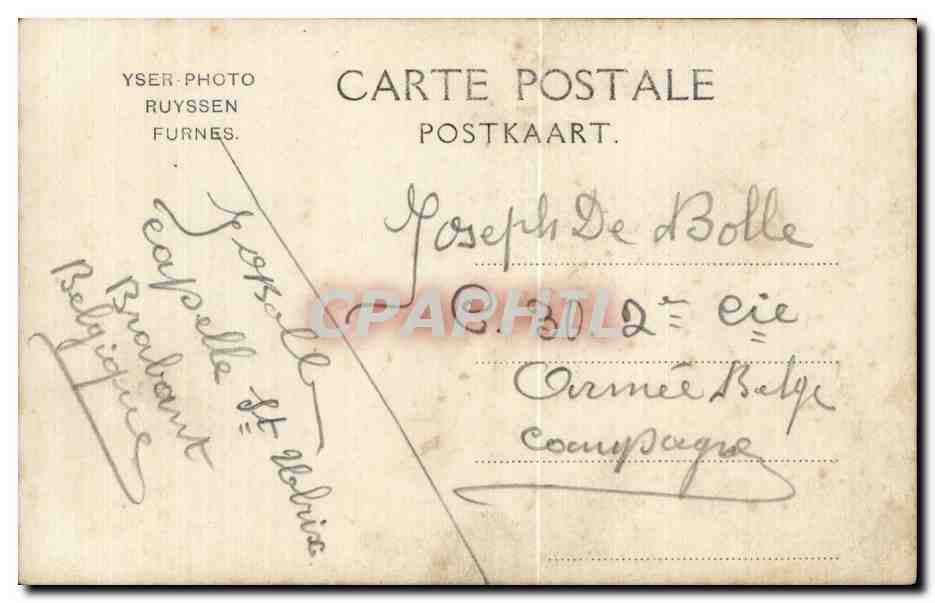 YSER-PHOTO
RUYSSEN
FURNES.
CARTE POSTALE
POSTKAART.
Joseph De Bolle
C. 30 2e cie
Armée Belge
Campagne
Capelle St Ulrix
Brabant
Belgique
CPARHIL